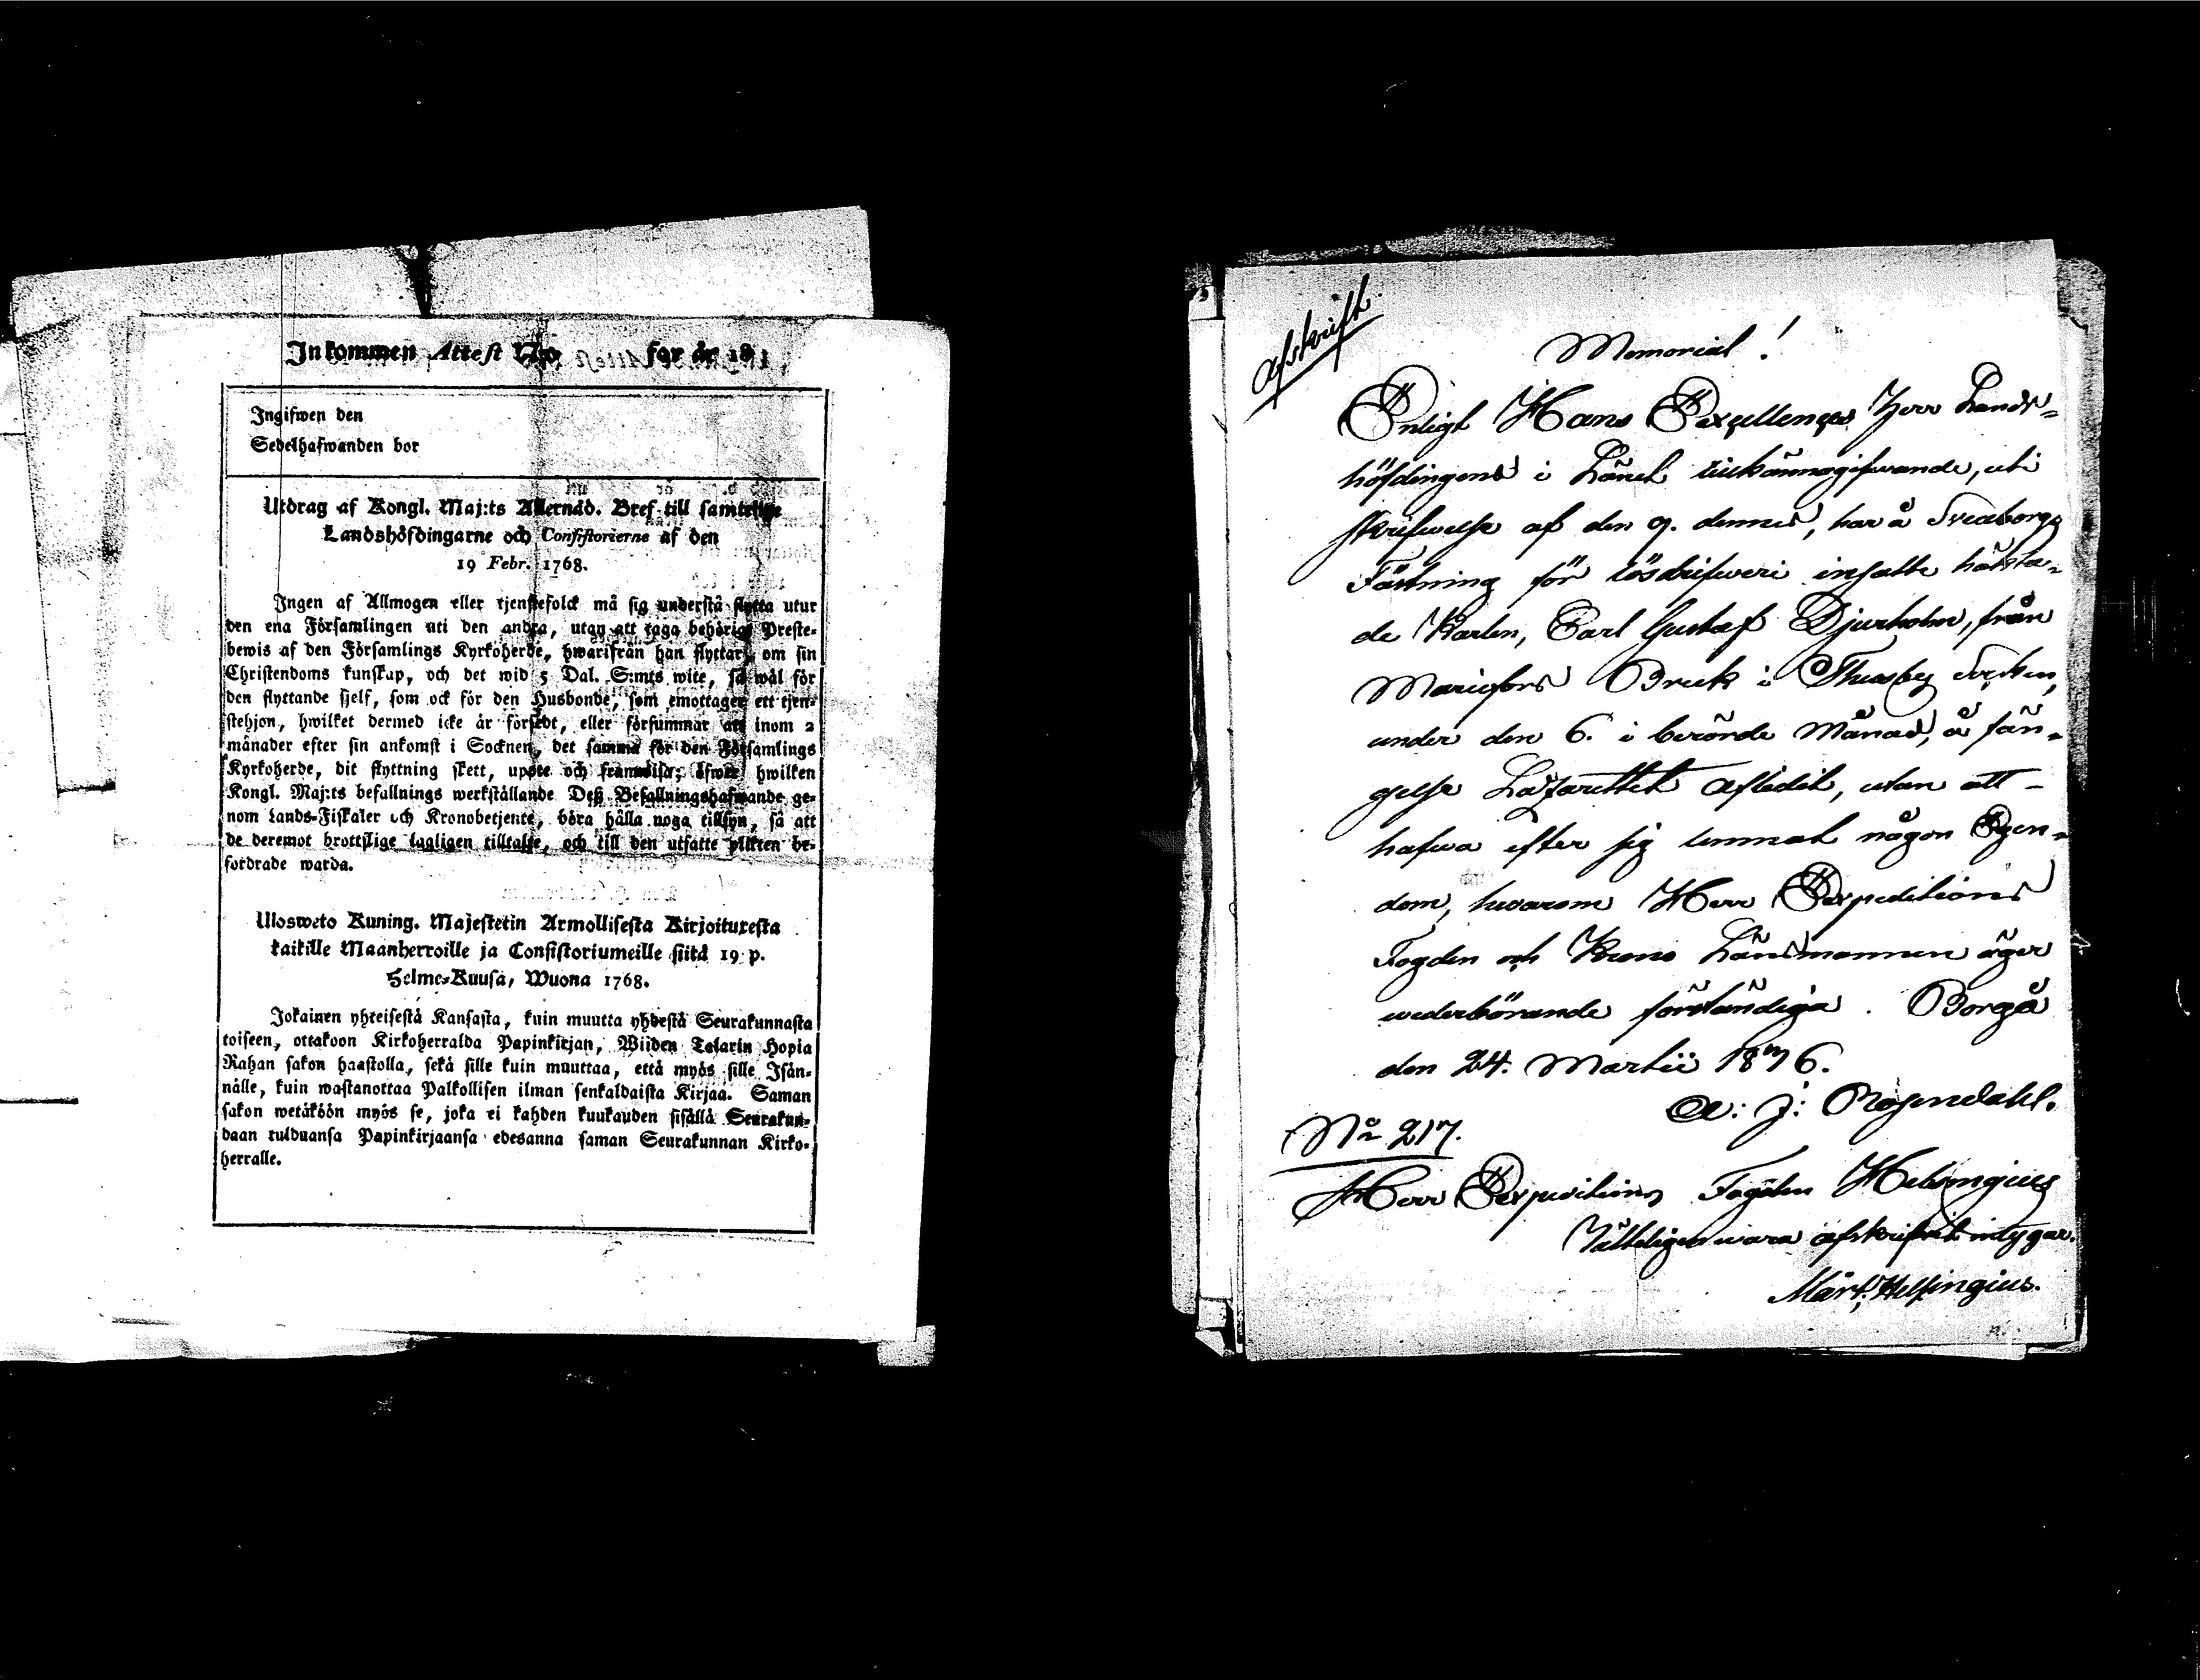 Inkommen Attest No för år 18
Ingifwen den
Sedelhafwanden bor
Utdrag af Kongl. Maj:ts Allernåd. Bref till samtelige
Landshöfdingarne och Consistorierne af den
19 Febr. 1768.
Ingen af Allmogen eller tjenstefolck må sig understå flytta utur
den ena Församlingen uti den andra, utan att taga behörigt Preste-
bewis af den Församlings Kyrkoherde, hwarifrån han flyttar, om sin
Christendoms kunskap, och det wid 5 Dal. S:mts wite, så wäl för
den flyttande sjelf, som ock för den Husbonde, som emottager ett tjen-
stehjon, hwilket dermed icke är försedt, eller försummar att inom 2
månader efter sin ankomst i Socknen, det samma för den Församlings
Kyrkoherde, dit flyttning skett, uppte och framwisa; öfwer hwilken
Kongl. Maj:ts befallnings werkställande Deß Befallningshafwande ge-
nom Lands-Fiskaler och Kronobetjente, böra hålla noga tillsyn, så att
de deremot brottslige lagligen tilltalte, och till den utsatte plikten be-
fordrade warda.
Ulosweto Kuning. Majestetin Armollisesta Kirjoituxesta
kaikille Maanherroille ja Consistoriumeille siitä 19 p.
Helme-Kuusa, Wuona 1768.
Jokainen yhteisestä Kansasta, kuin muutta yhdestä Seurakunnasta
toiseen, ottakoon Kirkoherralda Papinkirjan, Wiiden Talarin Hopia
Rahan sakon haastolla, sekä sille kuin muuttaa, että myös sille Isän-
nälle, kuin wastanottaa Palkollisen ilman senkaldaista Kirjaa. Saman
sakon wetäköön myös se, joka ei kahden kuukauden sisällä Seurakun-
daan tulduansa Papinkirjaansa edesanna saman Seurakunnan Kirko-
herralle.
Afskrift
Memorial!
Enligt Hans Excellences Herr Lands-
höfdingens i Länet tillkännagifwande, uti
skrifwelse af den 9. dennes, har å Sveaborgs
Fästning för lösdrifweri insatte häkta-
de Karlen, Carl Gustaf Djurholm, från
Mariefors Bruk i Thusby Socken,
under den 6. i berörde Månad, å fän-
gelse Lazarettet aflidit, utan att
hafwa efter sig lemnat någon Egen-
dom, hwarom Herr Expeditions
Fogden och Krono Länsmannen äger
wederbörande förständiga. Borgå
den 24. Martii 1846.
A: J: Rosendahl.
No 217.
Herr Expeditions Fogden Helsingius
Rätteligen wara afskrifvit intygar.
Märt: Helsingius.